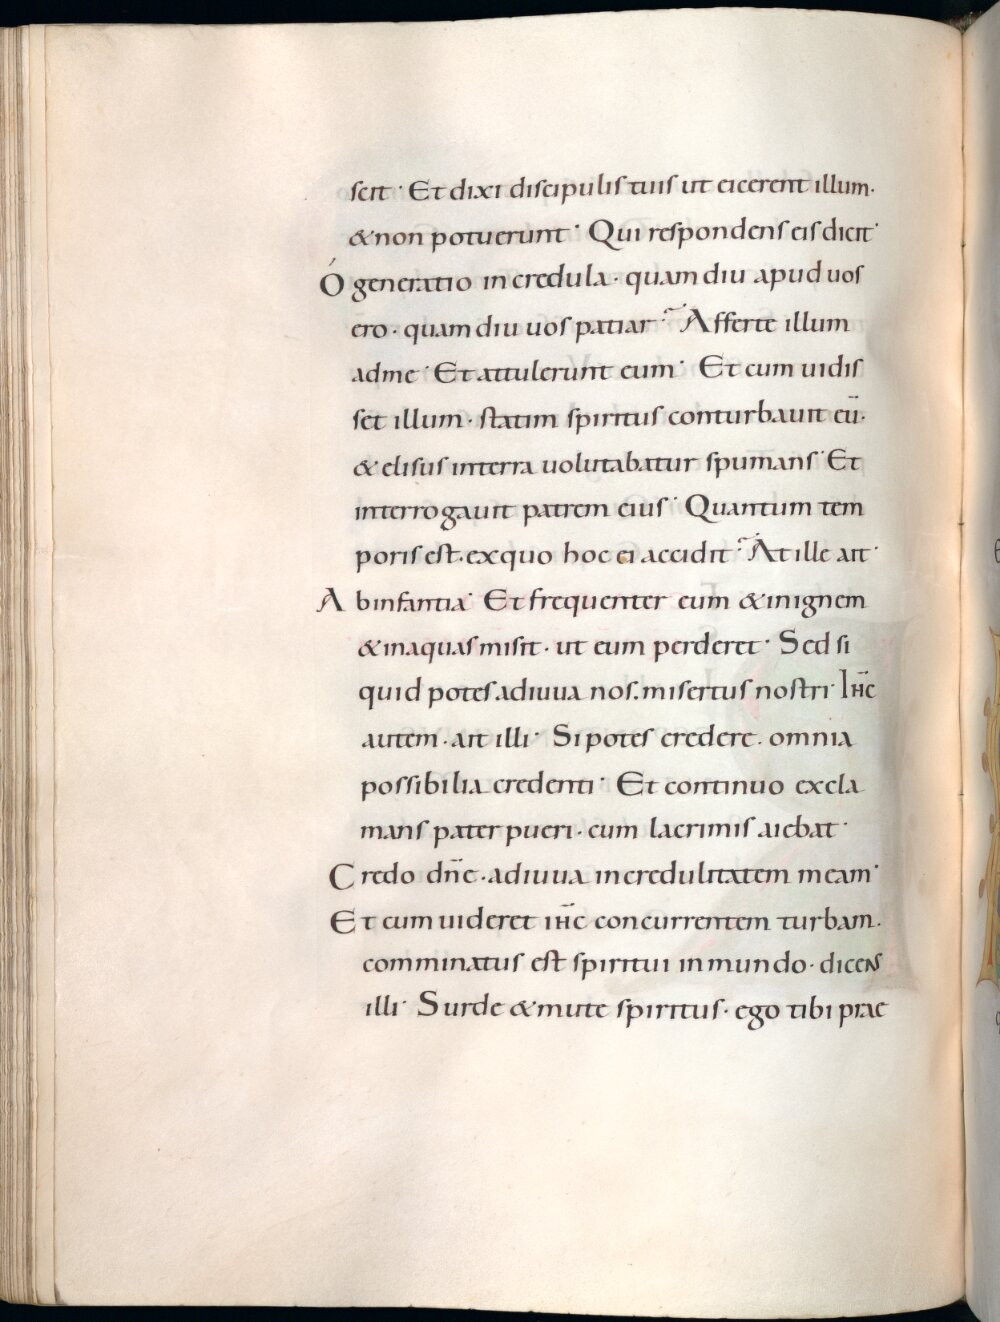 scit· Et dixi discipulis tuis ut eicerent illum·
&non potuerunt· Qui respondens eis dicit·
Ó generatio incredula· quam diu apud uos
ero· quam diu uos patiar· Afferte illum
adme· Et attulerunt eum· Et cum uidis
set illum· statim spiritus conturbauit eū·
& elisus interra uolutabatur spumans· Et
interrogauit patrem eius· Quantum tem
poris est· exquo hoc ei accidit· At ille ait·
Ab infantia· Et frequenter eum &inignem
&inaquas misit· ut eum perderet· Sed si
quid potes adiuua nos· misertus nostri· Ihc̄
autem· ait illi· Si potes credere· omnia
possibilia credenti· Et continuo excla
mans pater pueri· cum lacrimis aiebat·
Credo dn̄e· adiuua incredulitatem meam·
Et cum uideret ihc̄ concurrentem turbam·
comminatus est spiritui inmundo· dicens
illi· Surde &mute spiritus· ego tibi prae